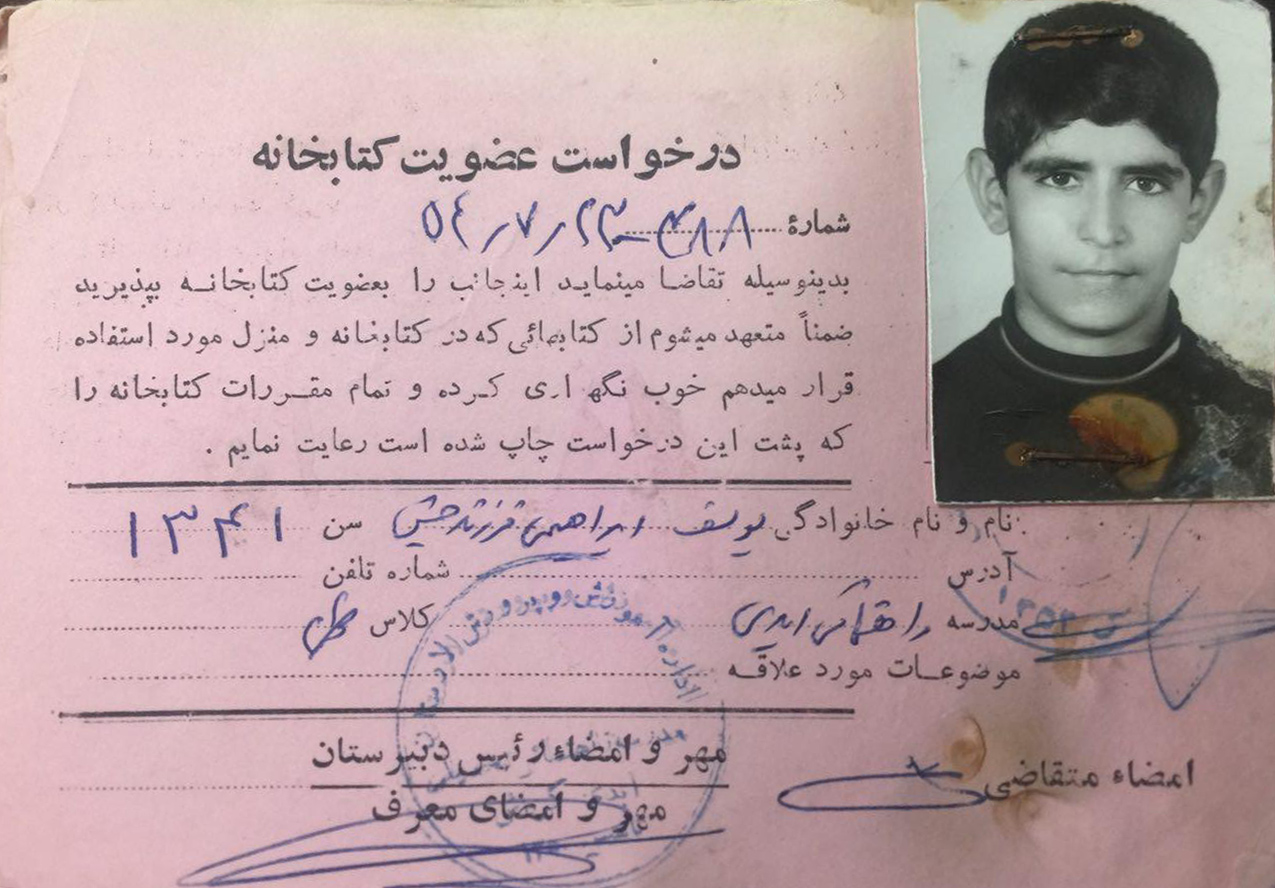 درخواست عضویت کتابخانه
شمارهٔ ۴۸۸ - ۵۴/۷/۲۳
بدینوسیله تقاضا مینماید اینجانب را بعضویت کتابخانه بپذیرید
ضمناً متعهد میشوم از کتابهائی که در کتابخانه و منزل مورد استفاده
قرار میدهم خوب نگهداری کرده و تمام مقررات کتابخانه را
که پشت این درخواست چاپ شده است رعایت نمایم .
نام و نام خانوادگی یوسف ابراهیمی فرزند سن ۱۳۴۱
آدرس شماره تلفن
مدرسه کلاس
موضوعات مورد علاقه
مهر و امضاء رئیس دبیرستان
امضاء متقاضی
مهر و امضای معرف
اداره آموزش و پرورش